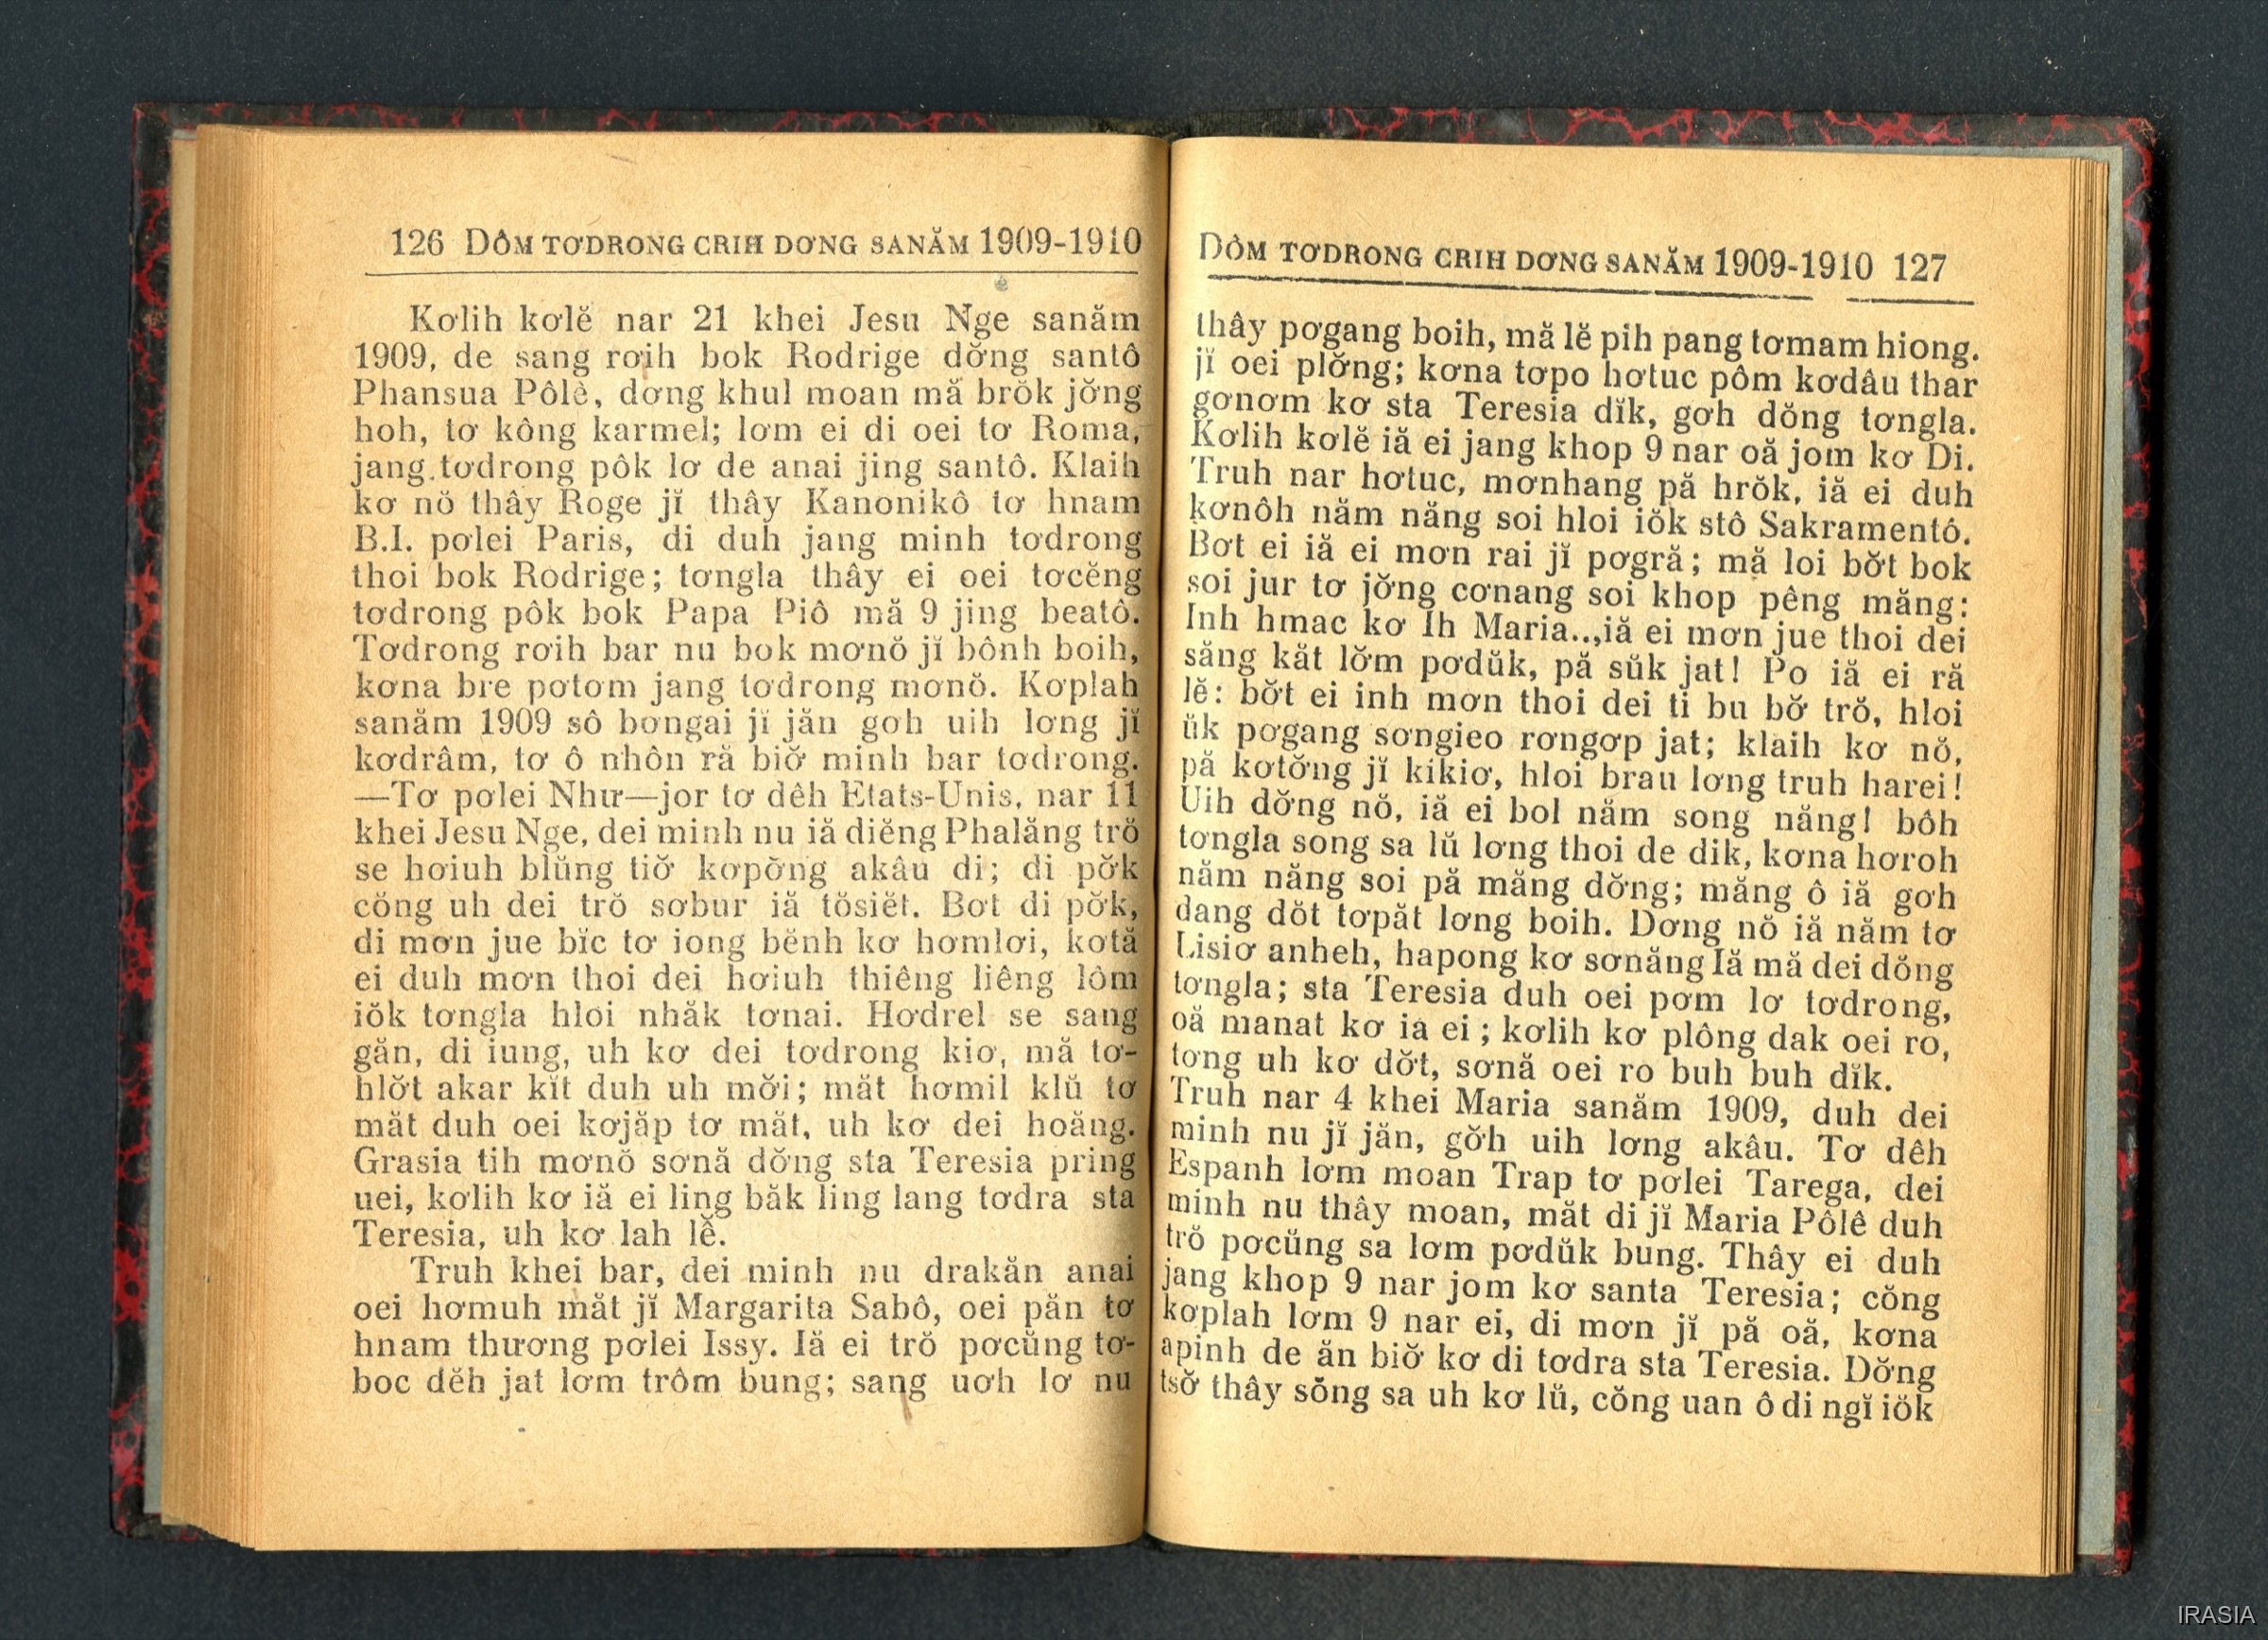 126 DÔM TƠDRONG CRIH DƠNG SANĂM 1909-1910
Kơlih kơlĕ nar 21 khei Jesu Nge sanăm
1909, de sang rơih bok Rodrige dơ̆ng santô
Phansua Pôlê, dơng khul moan mă brŏk jơ̆ng
hoh, tơ kông karmel; lơm ei di oei tơ Roma,
jang tơdrong pôk lơ de anai jing santô. Klaih
kơ nŏ thây Roge jĭ thây Kanonikô tơ hnam
B.I. pơlei Paris, di duh jang minh tơdrong
thoi bok Rodrige; tơngla thây ei oei tơcĕng
tơdrong pôk bok Papa Piô mă 9 jing beatô.
Tơdrong rơih bar nu bok mơnŏ jĭ bônh boih,
kơna bre pơtơm jang tơdrong mơnŏ. Kơplah
sanăm 1909 sô bơngai jĭ jăn gơh uih lơng jĭ
kơdrâm, tơ ô nhôn ră biơ̆ minh bar tơdrong.
—Tơ pơlei Như—jor tơ dêh Etats-Unis, nar 11
khei Jesu Nge, dei minh nu iă diĕng Phalăng trŏ
se hơiuh blŭng tiơ̆ kơpơ̆ng akâu di; di pơ̆k
cŏng uh dei trŏ sơbur iă tŏsiĕt. Bơt di pơ̆k,
di mơn jue bĭc tơ iong bĕnh kơ hơmlơi, kơtă
ei duh mơn thoi dei hơiuh thiêng liêng lôm
iŏk tơngla hloi nhăk tơnai. Hơdrel se sang
găn, di iung, uh kơ dei tơdrong kiơ, mă tơ-
hlơ̆t akar kĭt duh uh mơ̆i; măt hơmil klŭ tơ
măt duh oei kơjăp tơ măt, uh kơ dei hoăng.
Grasia tih mơnŏ sơnă dơ̆ng sta Teresia pring
uei, kơlih kơ iă ei ling băk ling lang tơdra sta
Teresia, uh kơ lah lĕ.
Truh khei bar, dei minh nu drakăn anai
oei hơmuh măt jĭ Margarita Sabô, oei păn tơ
hnam thương pơlei Issy. Iă ei trŏ pơcŭng tơ-
boc dĕh jat lơm trôm bung; sang uơh lơ nu
DÔM TƠDRONG CRIH DƠNG SANĂM 1909-1910 127
thây pơgang boih, mă lĕ pih pang tơmam hiong.
jĭ oei plơ̆ng; kơna tơpo hơtuc pôm kơdâu thar
gơnơm kơ sta Teresia dĭk, gơh dŏng tơngla.
Kơlih kơlĕ iă ei jang khop 9 nar oă jom kơ Di.
Truh nar hơtuc, mơnhang pă hrŏk, iă ei duh
kơnôh năm năng soi hloi iŏk stô Sakramentô.
Bơt ei iă ei mơn rai jĭ pơgră; mă loi bơ̆t bok
soi jur tơ jơ̆ng cơnang soi khop pêng măng:
Inh hmac kơ Ih Maria..,iă ei mơn jue thoi dei
săng kăt lơ̆m pơdŭk, pă sŭk jat! Po iă ei ră
lĕ: bơ̆t ei inh mơn thoi dei ti bu bơ̆ trŏ, hloi
ŭk pơgang sơngieo rơngơp jat; klaih kơ nŏ,
pă kơtơ̆ng jĭ kikiơ, hloi brau lơng truh harei!
Uih dơ̆ng nŏ, iă ei bol năm song năng! bôh
tơngla song sa lŭ lơng thoi de dik, kơna hơroh
năm năng soi pă măng dơ̆ng; măng ô iă gơh
dang dŏt tơpăt lơng boih. Dơng nŏ iă năm tơ
Lisiơ anheh, hapong kơ sơnăng Iă mă dei dŏng
tơngla; sta Teresia duh oei pơm lơ tơdrong,
oă manat kơ iă ei; kơlih kơ plông dak oei ro,
tơng uh kơ dơ̆t, sơnă oei ro buh buh dĭk.
Truh nar 4 khei Maria sanăm 1909, duh dei
minh nu jĭ jăn, gơ̆h uih lơng akâu. Tơ dêh
Espanh lơm moan Trap tơ pơlei Tarega, dei
minh nu thây moan, măt di jĭ Maria Pôlê duh
trŏ pơcŭng sa lơm pơdŭk bung. Thây ei duh
jang khop 9 nar jom kơ santa Teresia; cŏng
kơplah lơm 9 nar ei, di mơn jĭ pă oă, kơna
apinh de ăn biơ̆ kơ di tơdra sta Teresia. Dơ̆ng
tsơ̆ thây sŏng sa uh kơ lŭ, cŏng uan ô di ngĭ iŏk
IRASIA